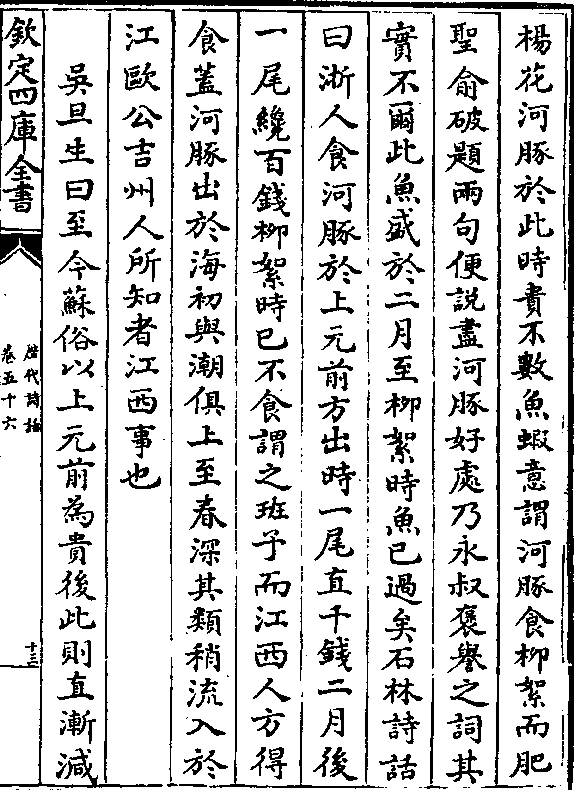 楊花河豚於此時貴不數魚蝦意謂河豚食柳絮而肥
聖俞破題兩句便說盡河豚好處乃永叔褒譽之詞其
實不爾此魚盛於二月至柳絮時魚已過矣石林詩話
曰浙人食河豚於上元前方出時一尾直千錢二月後
一尾纔百錢柳絮時已不食謂之班子而江西人方得
食蓋河豚出於海初與潮俱上至春深其類稍流入於
江歐公吉州人所知者江西事也
吳旦生曰至今蘇俗以上元前為貴後此則直漸減
欽定四庫全書
歷代詩話
卷五十六
十三